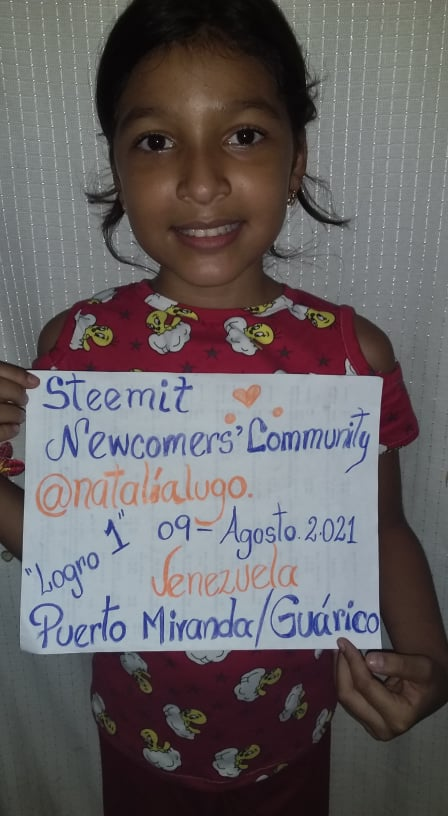 Steemit
Newcomers' Community
@natalialugo.
"Logro 1" 09-Agosto.2.021
Venezuela
Puerto Miranda/Guárico